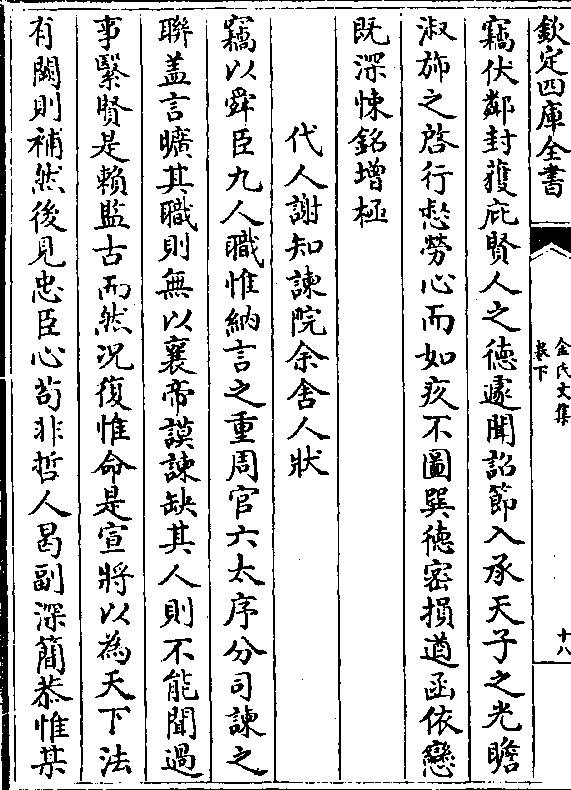 欽定四庫全書
金氏文集
卷下
十八
竊伏鄰封獲庇賢人之徳遽聞詔節入承天子之光瞻
淑斾之啓行慭勞心而如疚不圖巽徳宻損遒函依戀
既深悚銘增極
代人謝知諫院余舍人狀
竊以舜臣九人職惟納言之重周官六太序分司諫之
聯盖言曠其職則無以襄帝謨諫缺其人則不能聞過
事緊賢是賴監古而然况復惟命是宣將以為天下法
有闕則補然後見忠臣心茍非哲人曷副深簡恭惟某